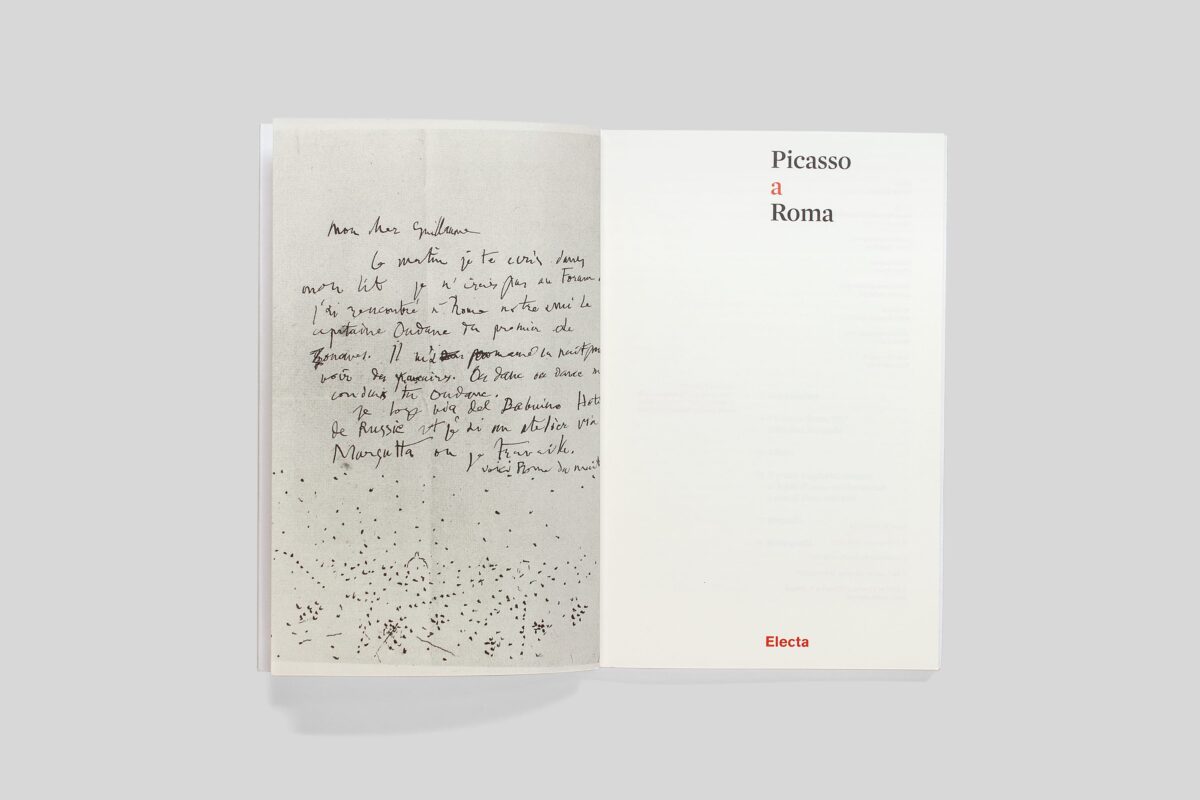 mon cher Guillaume
Ce matin je te ecris dans
mon lit je n'irais pas au Forum.
j'ai rencontré à Rome notre ami le
capitaine Oudane du premier de
Zouaves. Il m'a promané la nuit
voir des On danc on dance
conduis tu Oudane.
je loge via del Babuino Hot
de Russie et j'ai un atelier via
Margutta ou je travaille.
voici Rome du nuit
Picasso
a
Roma
Electa